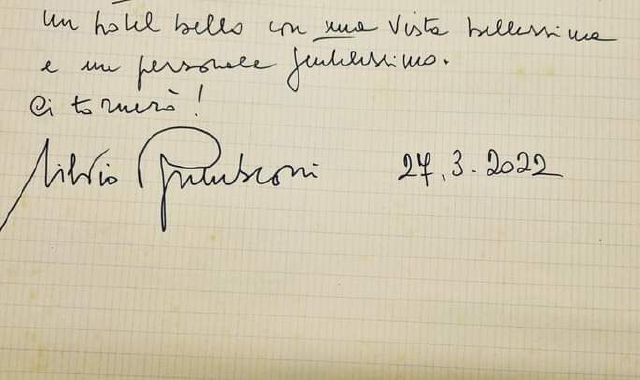 un hotel bello con una vista bellissima
e un personale gentilissimo.
Ci tornerò!
Silvio Berlusconi 27.3.2022